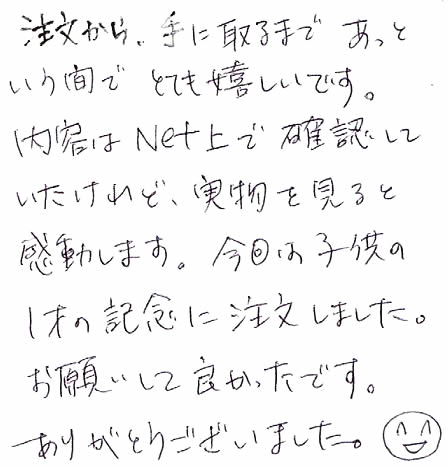 注文から、手に取るまで あっと
いう間で とても嬉しいです。
内容は Net上で 確認して
いたけれど、実物を見ると
感動します。今回は子供の
1才の記念に注文しました。
お願いして良かったです。
ありがとうございました。